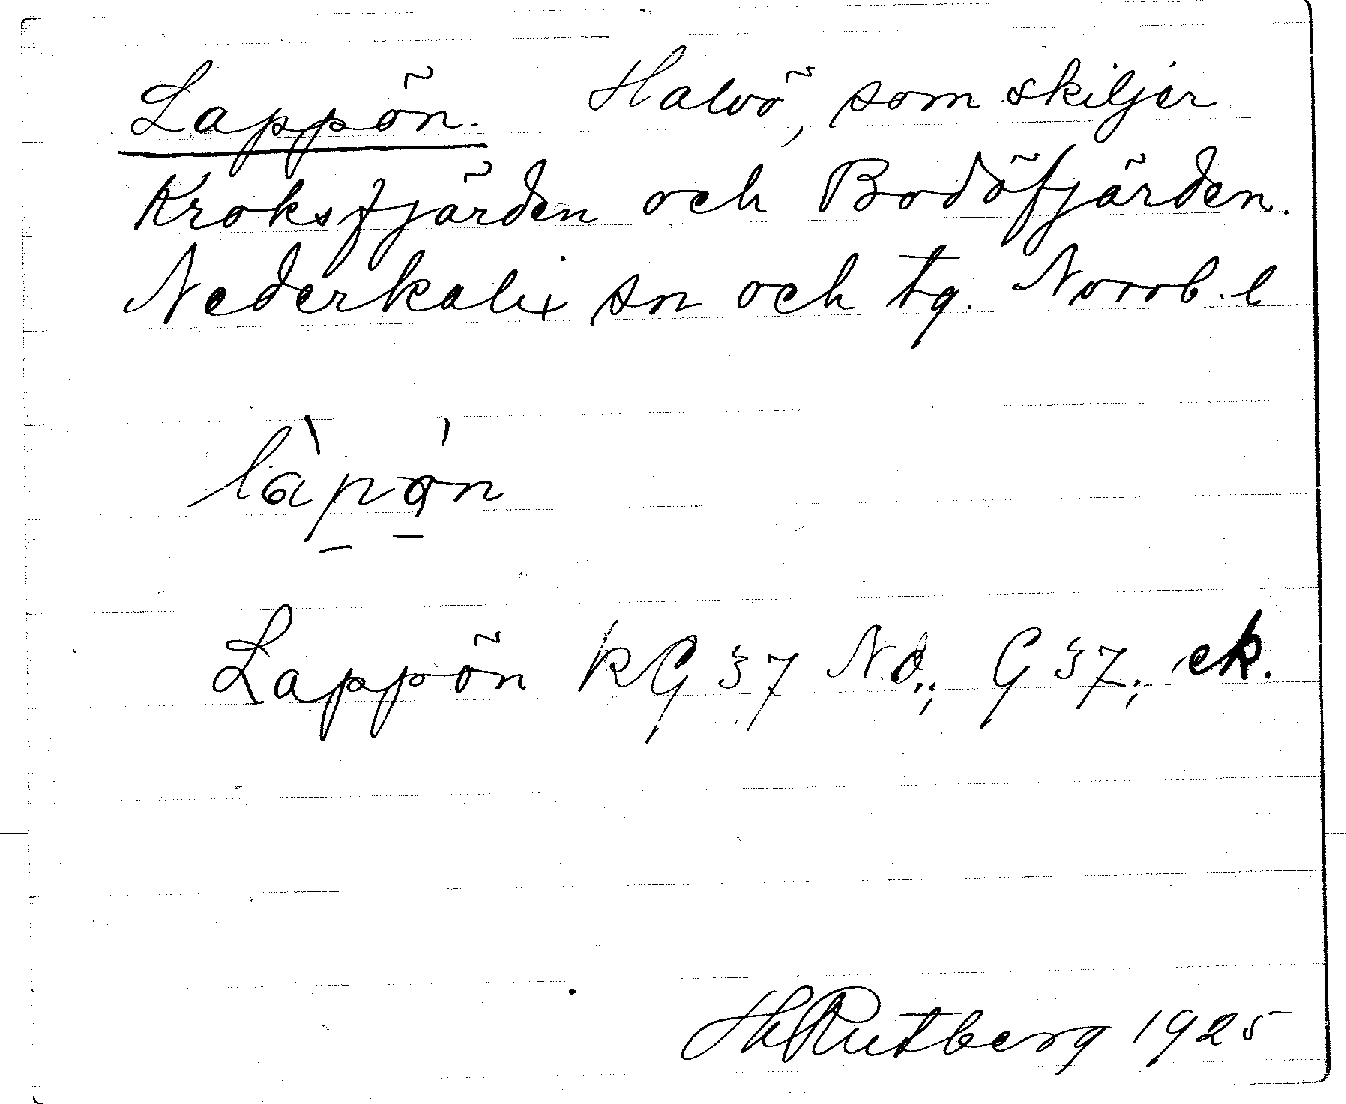 Lappön. Halvö, som skiljer
Kroksfjärden och Bodöfjärden.
Nederkalix sn och tg. Norrb. l
Lappön kG 37 Nd.; G 37; ek.
H Rutberg 1925